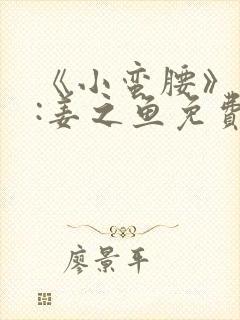 《小蛮腰》
:姜之鱼免費
廖景平